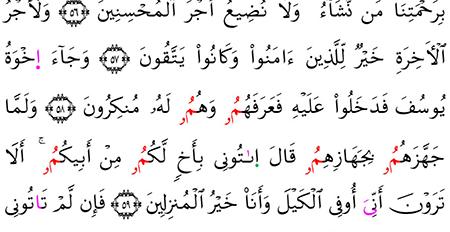 بِرَحْمَتِنَا مَن نَّشَآءُ وَلَا نُضِيعُ أَجْرَ ٱلْمُحْسِنِينَ ٥٦ وَلَأَجْرُ
ٱلْأَخِرَةِ خَيْرٌ لِّلَّذِينَ ءَامَنُواْ وَكَانُواْ يَتَّقُونَ ٥٧ وَجَآءَ اِخْوَةُ
يُوسُفَ فَدَخَلُواْ عَلَيْهِ فَعَرَفَهُمُۥ وَهُمُۥ لَهُۥ مُنكِرُونَ ٥٨ وَلَمَّا
جَهَّزَهُمُۥ بِجَهَازِهِمُۥ قَالَ اَيتُونِى بِأَخٍ لَّكُمُۥ مِنْ أَبِيكُمُۥ ۚ أَلَا
تَرَوْنَ أَنِّىَ أُوفِى ٱلْكَيْلَ وَأَنَا۠ خَيْرُ ٱلْمُنزِلِينَ ٥٩ فَإِن لَّمْ تَاتُونِى